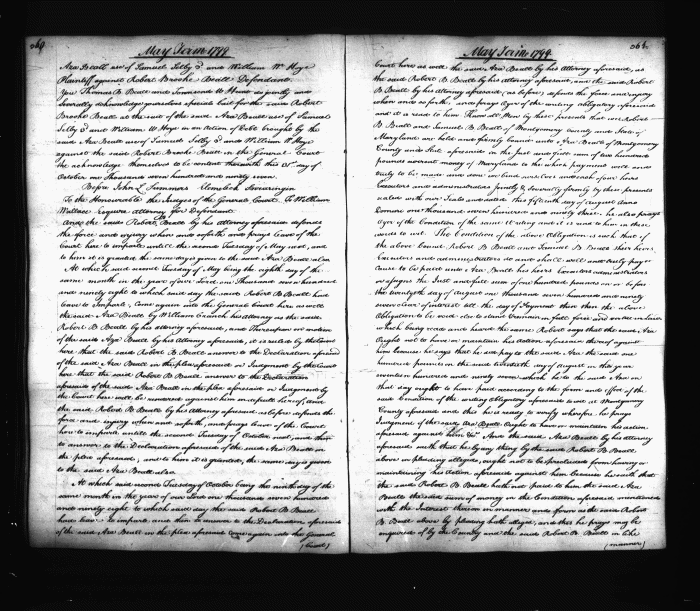 May Term 1799
Aza Beall use of Samuel Selby 3d and William W Hoye
Plaintiff against Robert Brooke Beall Defendant.
You Thomas B Beall and Townsend W Hand do jointly and
severally acknowledge yourselves special bail for the said Robert
Brooke Beall at the suit of the said Aza Beall use of Samuel
Selby 3d and William W Hoye in an Action of Debt brought by the
said Aza Beall use of Samuel Selby 3d and William W Hoye
against the said Robert Brooke Beall in the General Court
the acknowledge themselves to be content therewith this day of
October one Thousand seven hundred and ninety seven.
Before John L Summers
To the Honourable the Judges of the General Court. To William
Wallace Esquire Attorney for Defendant.
And the said Robert B Beall by his attorney aforesaid defends
the force and injury when and so forth and prays leave of the
Court here to imparle until the second Tuesday of May next, and
to him it is granted the same day is given to the said Aza Beall also
At which said second Tuesday of May being the eighth day of the
same month in the year of our Lord one Thousand seven hundred
and ninety eight to which said day the said Robert B Beall had
leave to imparle, Come again into the General Court here as well
the said Aza Beall by William Craik his attorney as the said
Robert B Beall by his attorney aforesaid, and Thereupon on motion
of the said Aza Beall by his Attorney aforesaid, it is ruled by the Court
here that the said Robert B Beall answer to the Declaration aforesaid
of the said Aza Beall in the plea aforesaid or Judgment by the Court
here that the said Robert B Beall answer to the Declaration
aforesaid of the said Aza Beall in the plea aforesaid or Judgment by
the Court here will be rendered against him in default hereof, And
the said Robert B Beall by his Attorney aforesaid as before defends the
force and injury when and so forth, and prays leave of the Court
here to imparle until the second Tuesday of October next, and then
to answer to the Declaration aforesaid of the said Aza Beall in
the plea aforesaid, and to him it is granted, the same day is given
to the said Aza Beall also
At which said second Tuesday of October being the ninth day of the
same month in the year of our Lord one thousand seven hundred
and ninety eight to which said day the said Robert B Beall
had leave to imparle, and then to answer to the Declaration aforesaid
of the said Aza Beall in the plea aforesaid Come again into the General
(Court)
May Term 1799
Court here as well the said Aza Beall by his attorney aforesaid, as
the said Robert B Beall by his attorney aforesaid, and the said Robert
B Beall by his attorney aforesaid, (as before) defends the force and injury
when and so forth, and prays Oyer of the writing obligatory aforesaid
and it is read to him Know all Men by these presents that we Robert
B Beall and B Beall of Montgomery County and State of
Maryland are held and firmly bound unto Aza Beall of Montgomery
County and State aforesaid in the just and full sum of two hundred
pounds current money of Maryland to the which payment well and
truly to be made and done we bind ourselves and each of our heirs
Executors and administrators jointly & severally firmly by these presents
sealed with our Seals and dated this fifteenth day of August Anno
Domini one thousand seven hundred and ninety three. he also prays
Oyer of the Condition of the same Writing and it is read to him in these
words to wit. The Condition of the above Obligation is such that if
the above bound Robert B Beall and B Beall their heirs,
Executors and administrators do and shall well and truly pay or
cause to be paid unto Aza Beall his heirs Executors administrators
or assigns the just and full sum of one hundred pounds on or before
the twentieth day of August one thousand seven hundred and ninety
seven clear of interest till the day of payment then the above
Obligation to be void else to stand & remain in full force and virtue in law
which being read and heard the same Robert says that the said Aza
Ought not to have or maintain his action aforesaid thereof against
him because he says that he did pay to the said Aza the said one
hundred pounds on the said twentieth day of August in the year
seventeen hundred and ninety seven which he to the said Aza on
that day ought to have paid according to the form and effect of the
said Condition of the writing obligatory aforesaid to wit at Montgomery
County aforesaid and this he is ready to verify wherefore he prays
Judgment if the said Aza Beall ought to have or maintain his action
aforesaid against him &c. And the said Aza Beall by his attorney
aforesaid saith that he by any thing by the said Robert B Beall
above in pleading alleged, ought not to be precluded from having or
maintaining his action aforesaid against him because he saith that
the said Robert B Beall hath not paid to him the said Aza
Beall the said sum of money in the Condition aforesaid mentioned
with the Interest thereon in manner and form as the said Robert
B Beall above by pleading hath alleged, and this he prays may be
enquired of by the Country and the said Robert B Beall in like
(manner)